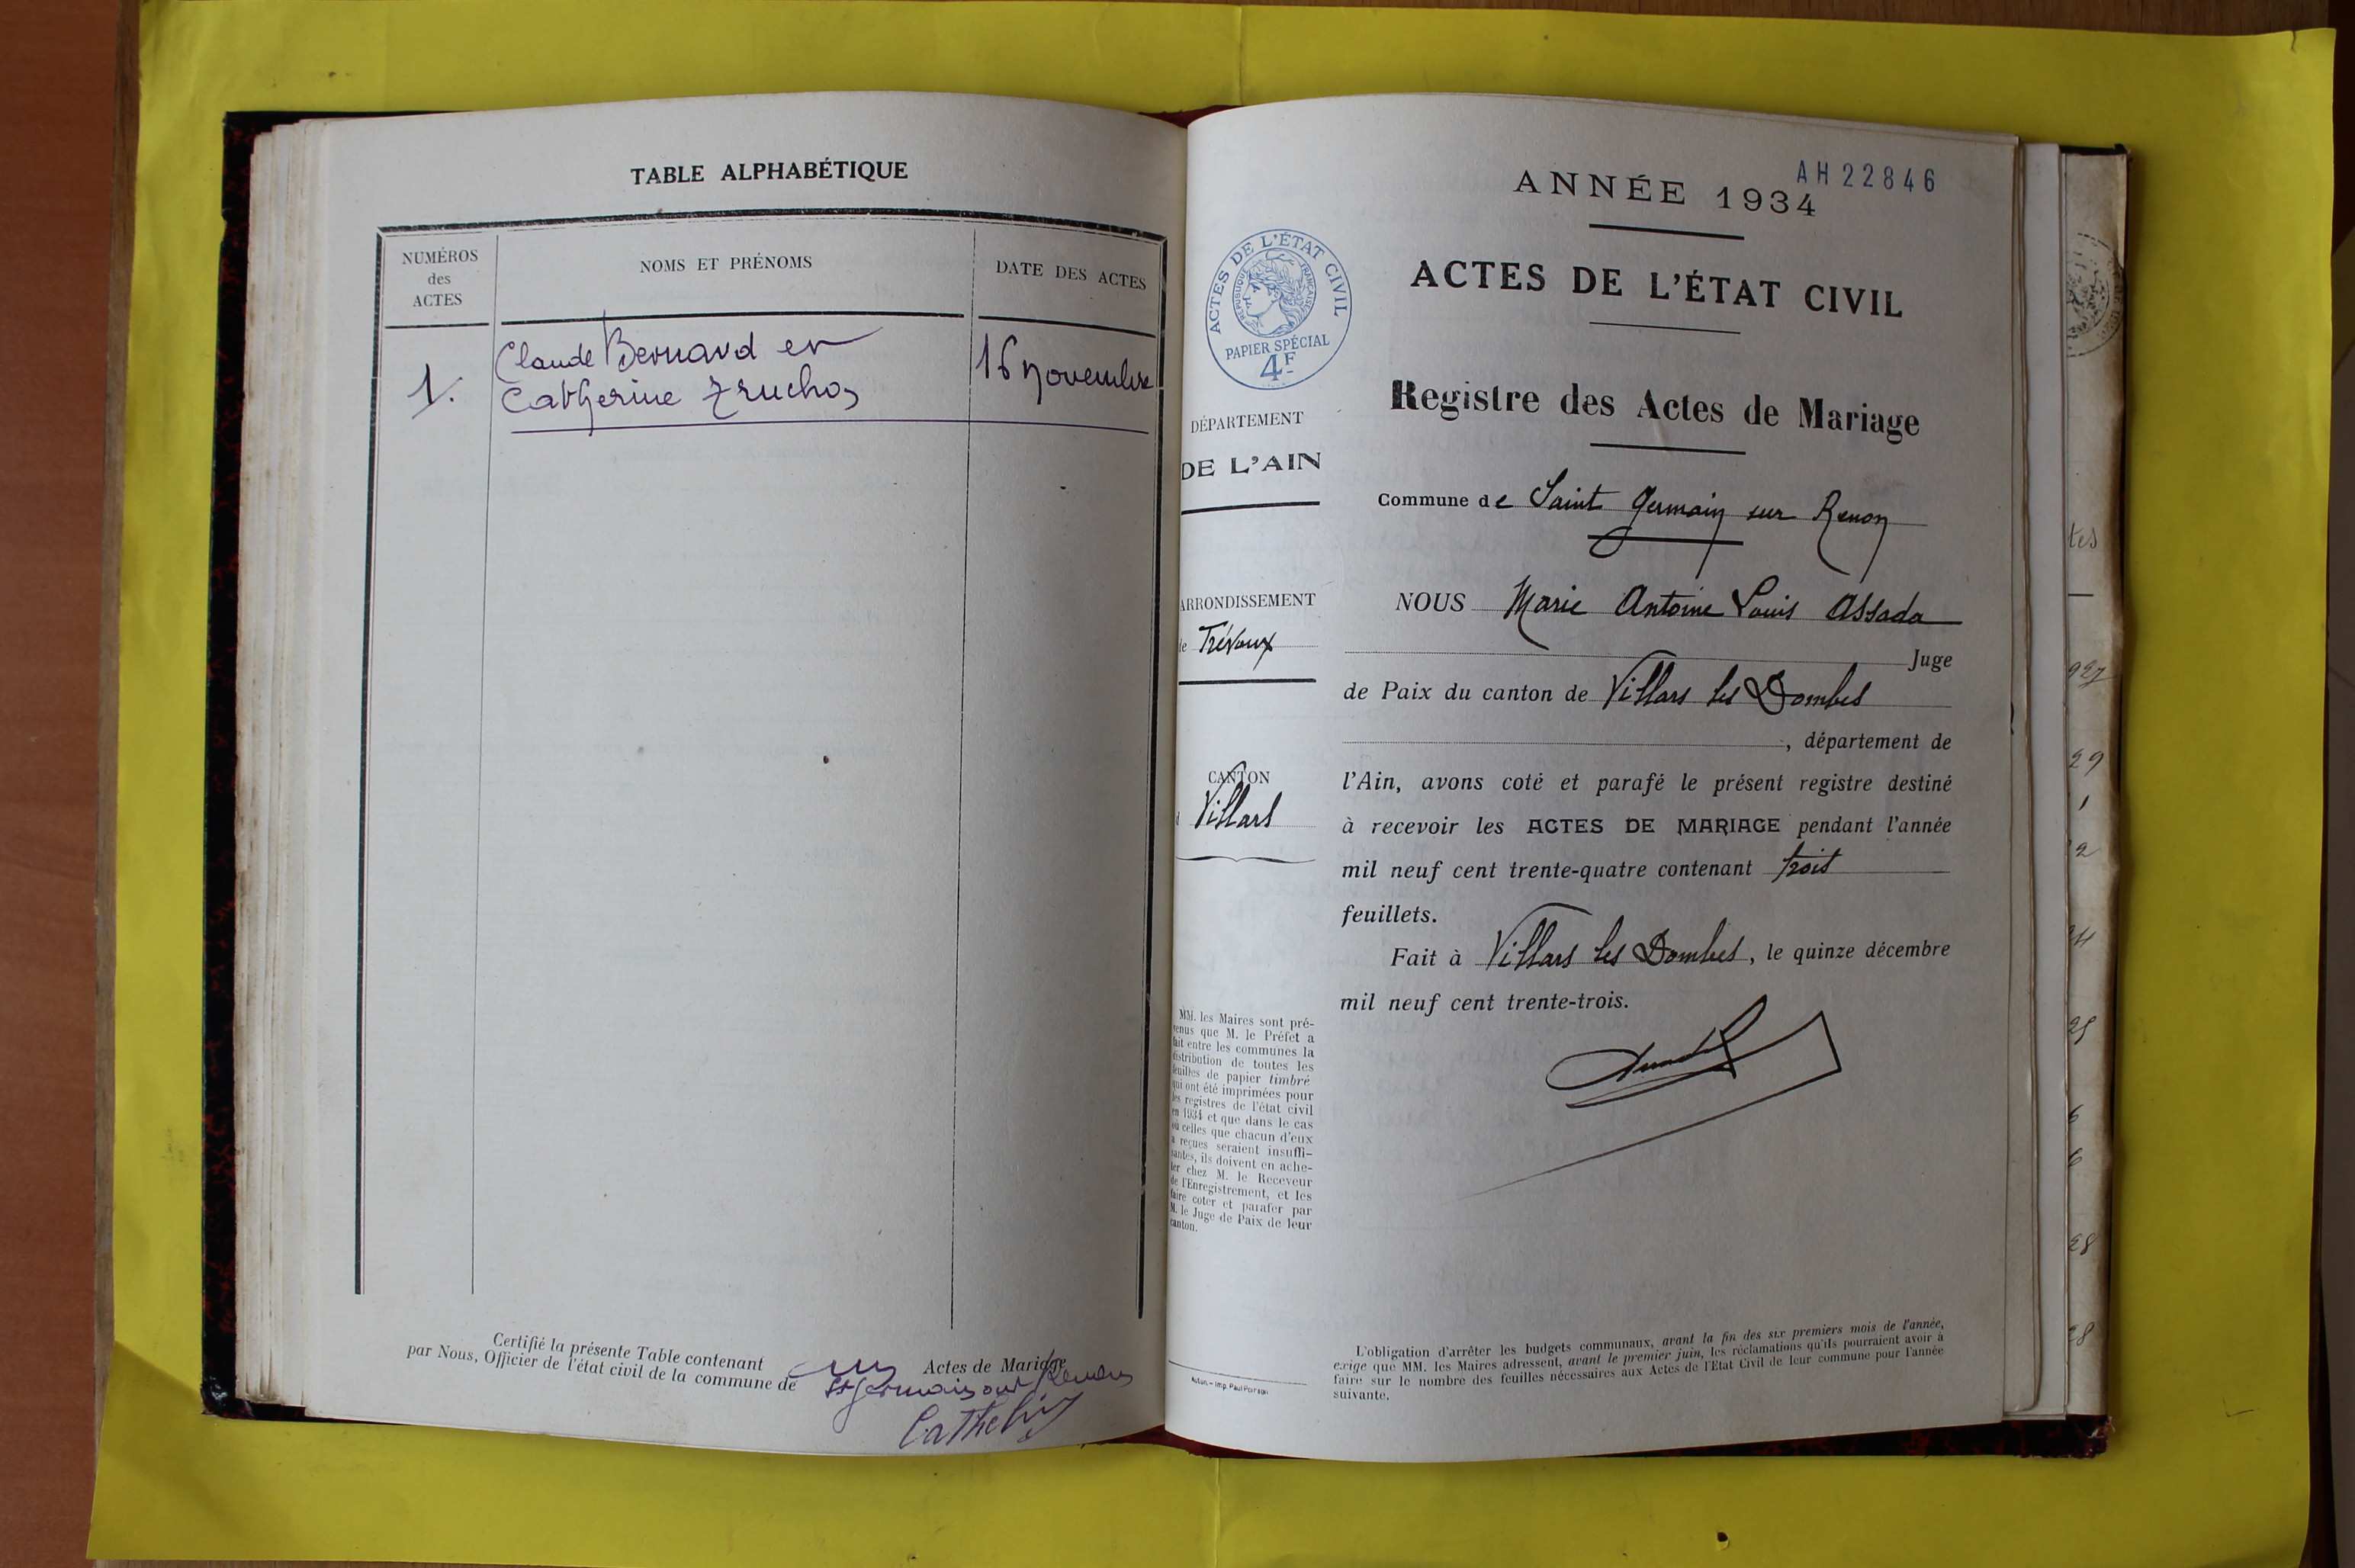 TABLE ALPHABÉTIQUE
NUMÉROS
des
ACTES
NOMS ET PRÉNOMS
DATE DES ACTES
1.
Claude Bernard et
Catherine Truchon
16 novembre
Certifié la présente Table contenant un Actes de Mariage
par Nous, Officier de l'état civil de la commune de St germain sur Renon
Cathelin
AH22846
ANNÉE 1934
ACTES DE L'ÉTAT CIVIL
RÉPUBLIQUE FRANÇAISE
PAPIER SPÉCIAL
4F
ACTES DE L'ÉTAT CIVIL
Registre des Actes de Mariage
DÉPARTEMENT
DE L'AIN
Commune de Saint Germain sur Renon
ARRONDISSEMENT
de Trévoux
NOUS Marie Antoine Louis Assada
Juge
de Paix du canton de Villars les Dombes
, département de
CANTON
Villars
l'Ain, avons coté et parafé le présent registre destiné
à recevoir les ACTES DE MARIAGE pendant l'année
mil neuf cent trente-quatre contenant trois
feuillets.
Fait à Villars les Dombes, le quinze décembre
mil neuf cent trente-trois.
MM. les Maires sont pré-
venus que M. le Préfet a
fait entre les communes la
distribution de toutes les
feuilles de papier timbré
qui ont été imprimées pour
les registres de l'état civil
en 1934 et que dans le cas
où celles que chacun d'eux
a reçues seraient insuffi-
santes, ils doivent en ache-
ter chez M. le Receveur
de l'Enregistrement, et les
faire coter et parafer par
M. le Juge de Paix de leur
canton.
Autun. — Imp. Paul Poirson
L'obligation d'arrêter les budgets communaux, avant la fin des six premiers mois de l'année,
exige que MM. les Maires adressent, avant le premier juin, les réclamations qu'ils pourraient avoir à
faire sur le nombre des feuilles nécessaires aux Actes de l'Etat Civil de leur commune pour l'année
suivante.
tes
927
29
1
2
25
6
6
28
28